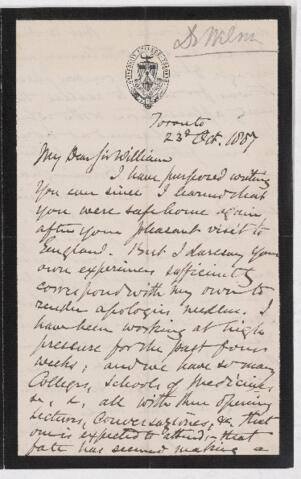 Dr Wilson
Toronto
23d Oct. 1887
My Dear Sir William
I have purposed writing
you ever since I learned that
you were safe home again
after your pleasant visit to
England. But I daresay your
own experiences sufficiently
correspond with my own to
render apologies needless. I
have been working at high
pressure for the past four
weeks; and we have so many
Colleges, Schools of Medicine,
&c, &c. all with their opening
lectures, conversaziones, &c. that
one is expected to attend,- that
fate has seemed making a